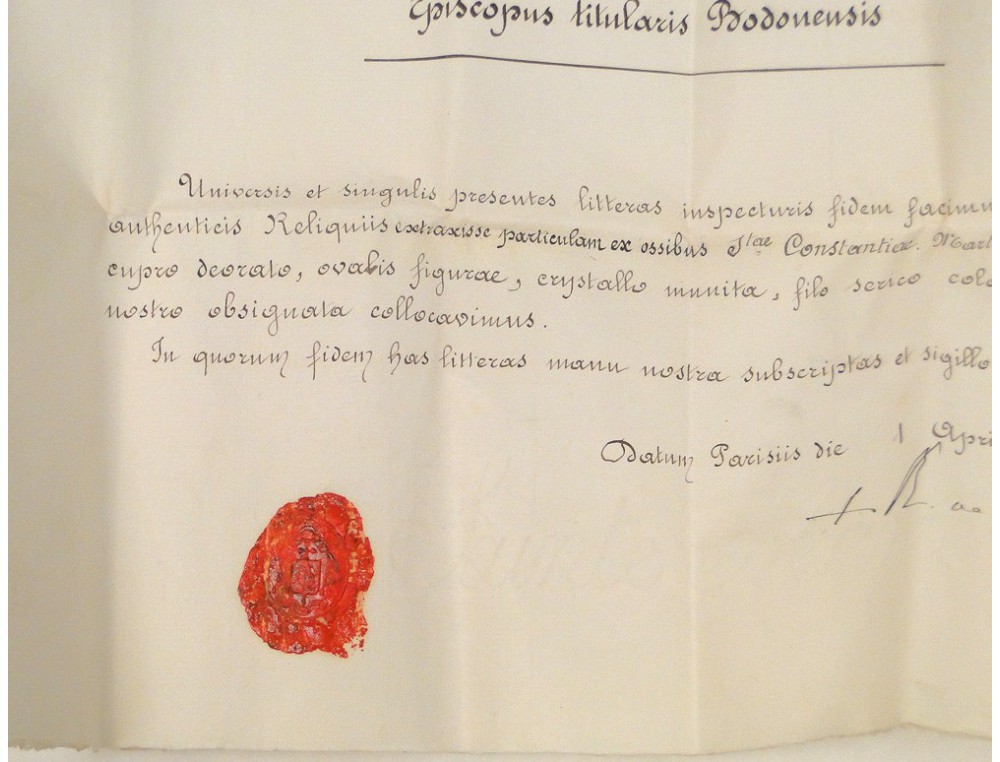 Episcopus titularis Bodonensis
Universis et singulis presentes litteras inspecturis fidem facimu
authenticis Reliquiis extraxisse particulam ex ossibus Stae Constantiae. Mart
cupro deorato, ovalis figurae, crystallo munita, filo serico colo
nostro obsignata collocavimus.
In quorum fidem has litteras manu nostra subscriptas et sigillo
Datum Parisiis die 1 Apri
+ R.